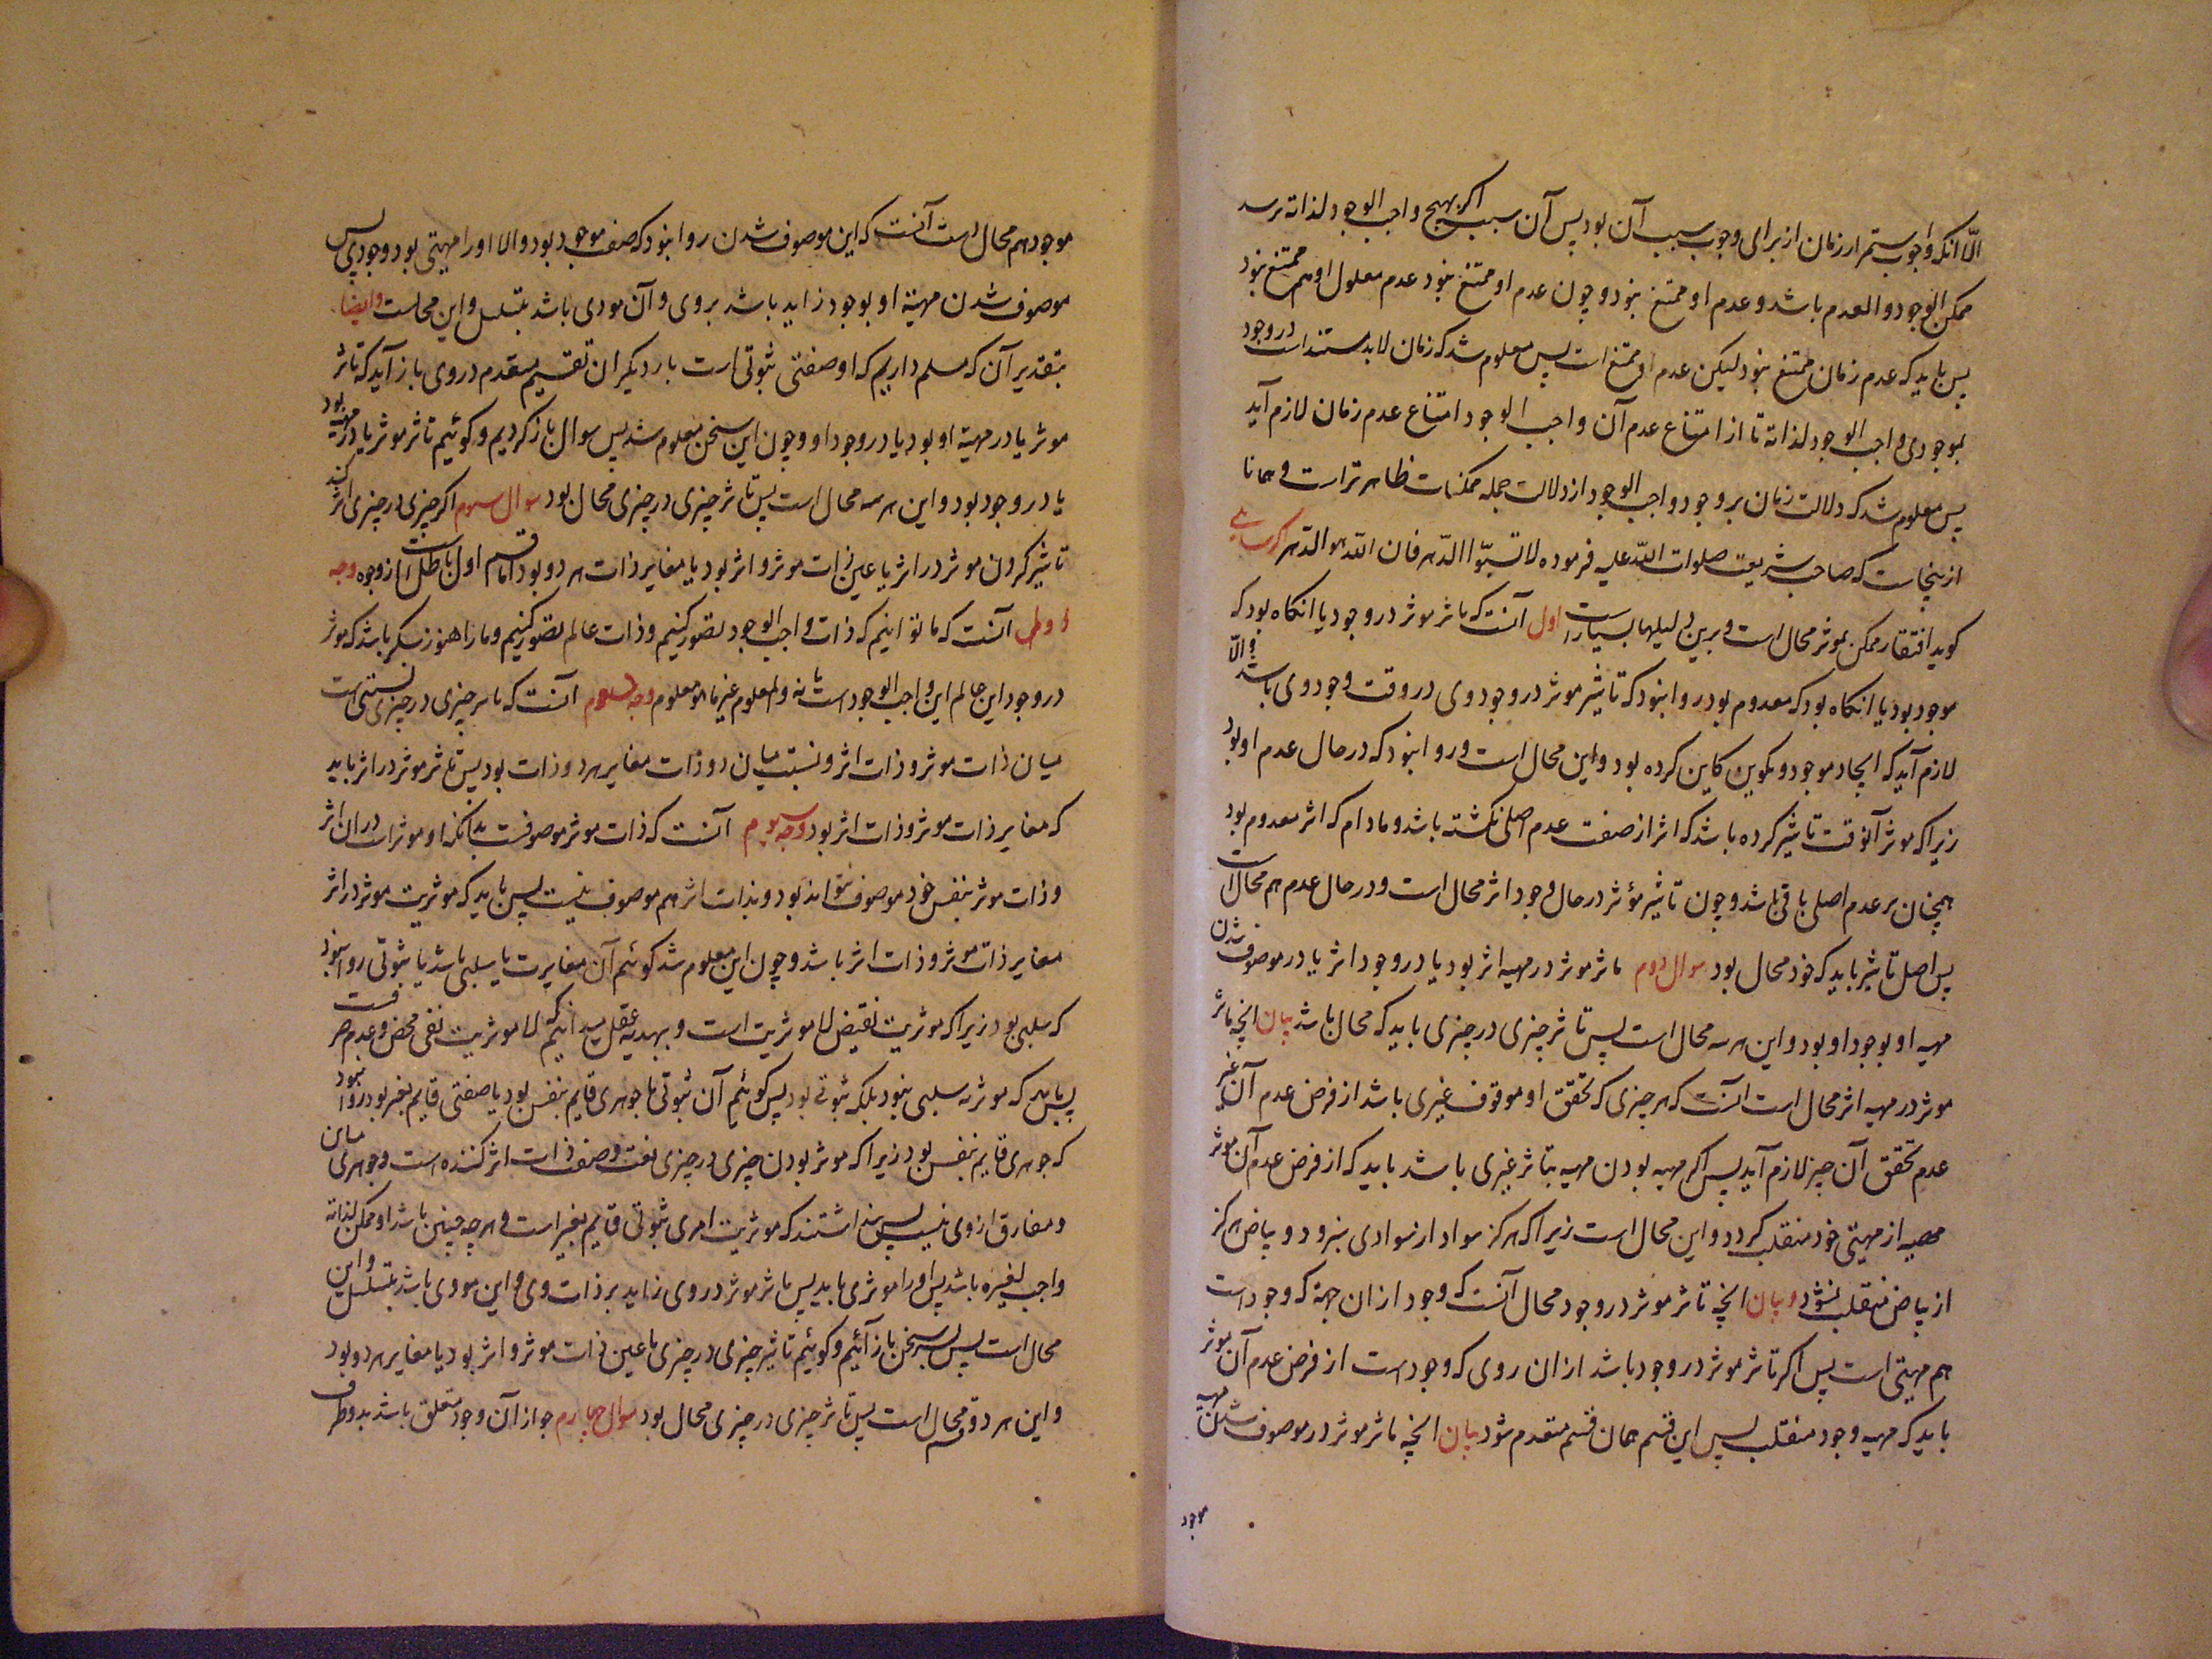 الّا آنکه وجوب استمرار زمان از برای وجوب سبب آن بود پس آن سبب اگر بهیچ واجب الوجود لذاته نرسد
ممکن الوجود والعدم باشد و عدم او ممتنع نبود و چون عدم او ممتنع نبود عدم معلول او هم ممتنع نبود
پس باید که عدم زمان ممتنع نبود لیکن عدم او ممتنع است پس معلوم شد که زمان لابد مستند است در وجود
بموجودی واجب الوجود لذاته تا از امتناع عدم آن واجب الوجود امتناع عدم زمان لازم آید
پس معلوم شد که دلالت زمان بر وجود واجب الوجود از دلالت جمله ممکنات ظاهرتر است و همانا
ازینجاست که صاحب شریعت صلوات اللّه علیه فرموده لا تسبّوا الدّهر فان اللّه هو الدّهر اگر سایلی
کوید افتقار ممکن بموثر محال است و برین دلیلها بسیار است اول آنست که تاثر موثر در وجود یا انکاه بود که
موجود بود یا انکاه بود که معدوم بود روا نبود که تاثیر موثر در وجود وی در وقت وجود وی باشد و الّا
لازم آید که ایجاد موجود و تکوین کاین کرده بود و این محال است و روا نبود که در حال عدم او بود
زیرا که موثر آنوقت تاثیر کرده باشد که اثر از صفت عدم اصلی نکشته باشد و مادام که اثر معدوم بود
همچنان بر عدم اصلی باقی باشد و چون تاثیر مؤثر در حال وجود اثر محال است و در حال عدم هم محال است
پس اصل تاثیر باید که خود محال بود سوال دوم تاثر موثر در مهیه اثر بود یا در وجود اثر یا در موصوف شدن
مهیه او بوجود او بود و این هر سه محال است پس تاثر چیزی در چیزی باید که محال باشد بیان انچه تاثر
موثر در مهیه اثر محال است آنست که هر چیزی که تحقق او موقوف غیری باشد از فرض عدم آن غیر
عدم تحقق آن چیز لازم آید پس اکر مهیه بودن مهیه بتاثر غیری باشد باید که از فرض عدم آن موثر
مهیه از مهیتی خود منقلب کردد و این محال است زیرا که هرکز سواد از سوادی بنرود و بیاض هرکز
از بیاض منقلب نشود و بیان انچه تاثر موثر در وجود محال آنست که وجود ازان جهة که وجود است
هم مهیتی است پس اکر تاثر موثر در وجود باشد ازان روی که وجود است از فرض عدم آن موثر
باید که مهیه وجود منقلب پس این قسم همان قسم متقدم شود بیان انچه تاثر موثر در موصوف شدن مهیه
موجود
موجود هم محال است آنست که این موصوف شدن روا نبود که صفه موجود بود و الا او را مهیتی بود و وجودی پس
موصوف شدن مهیة او بوجود زاید باشد بر وی و آن مودی باشد بتسلسل و این محالست و ایضا
بتقدیر آن که مسلم داریم که او صفتی ثبوتی است بار دیکر ان تقسیم متقدم در وی باز آید که تاثر
موثر یا در مهیة او بود یا در وجود او و چون این سخن معلوم شد پس سوال باز کردیم و کوئیم تاثر موثر یا در مهیه بود
یا در وجود بود و این هر سه محال است پس تاثر چیزی در چیزی محال بود سوال سوم اکر چیزی در چیزی اثر کند
تاثیر کردن موثر در اثر یا عین ذات موثر و اثر بود یا مغایر ذات هر دو بود اما قسم اول باطل است از وجوه وجه
اول آنست که ما توانیم که ذات واجب الوجود تصور کنیم و ذات عالم تصور کنیم و ما را هنوز باشد که موثر
در وجود این عالم این واجب الوجود است یا نه والمعلوم غیر ما لا معلوم وجه دوم آنست که تاثیر چیزی در چیزی نسبتی است
میان ذات موثر و ذات اثر و نسبت میان دو ذات مغایر هر دو ذات بود پس تاثر موثر در اثر باید
که مغایر ذات موثر و ذات اثر بود وجه سوم آنست که ذات موثر موصوفست بدانکه او موثر است دران اثر
و ذات موثر بنفس خود موصوف نتواند بود و بذات اثر هم موصوف نیست پس باید که موثریت موثر در اثر
مغایر ذات موثر و ذات اثر باشد و چون این معلوم شد کوئیم آن مغایرت یا سلبی باشد یا ثبوتی روا نبود
که سلبی بود زیرا که موثریت نقیض لاموثریت است و ببدیهه عقل میدانیم که لاموثریت نفی محض و عدم صرفست
پس باید که موثریه سلبی نبود بلکه ثبوتی بود پس کوئیم آن ثبوتی یا جوهری قایم بنفس بود یا صفتی قایم بغیر بود روا نبود
که جوهری قایم بنفس بود زیرا که موثر بودن چیزی در چیزی نعت و صفه ذات اثر کننده است و جوهری مباین
و مفارق از وی نیست پس نداشتند که موثریت امری ثبوتی قایم بغیر است و هرچه چنین باشد او ممکن لذاته
واجب لغیره باشد پس او را موثری باید پس تاثر موثر در وی زاید بر ذات وی و این مودی باشد بتسلسل و این
محال است پس بسر سخن باز آئیم و کوئیم تاثیر چیزی در چیزی یا عین ذات موثر و اثر بود یا مغایر هر دو بود
و این هر دو قسم محال است پس تاثر چیزی در چیزی محال بود سوال چهارم جواز آن وجود متعلق باشد بدو طرف